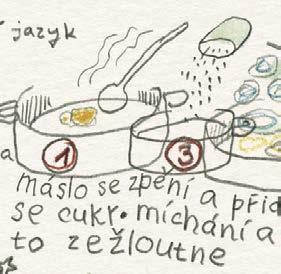 jazyk
1
3
a
máslo se zpění a přid
se cukr. míchání a
to zežloutne